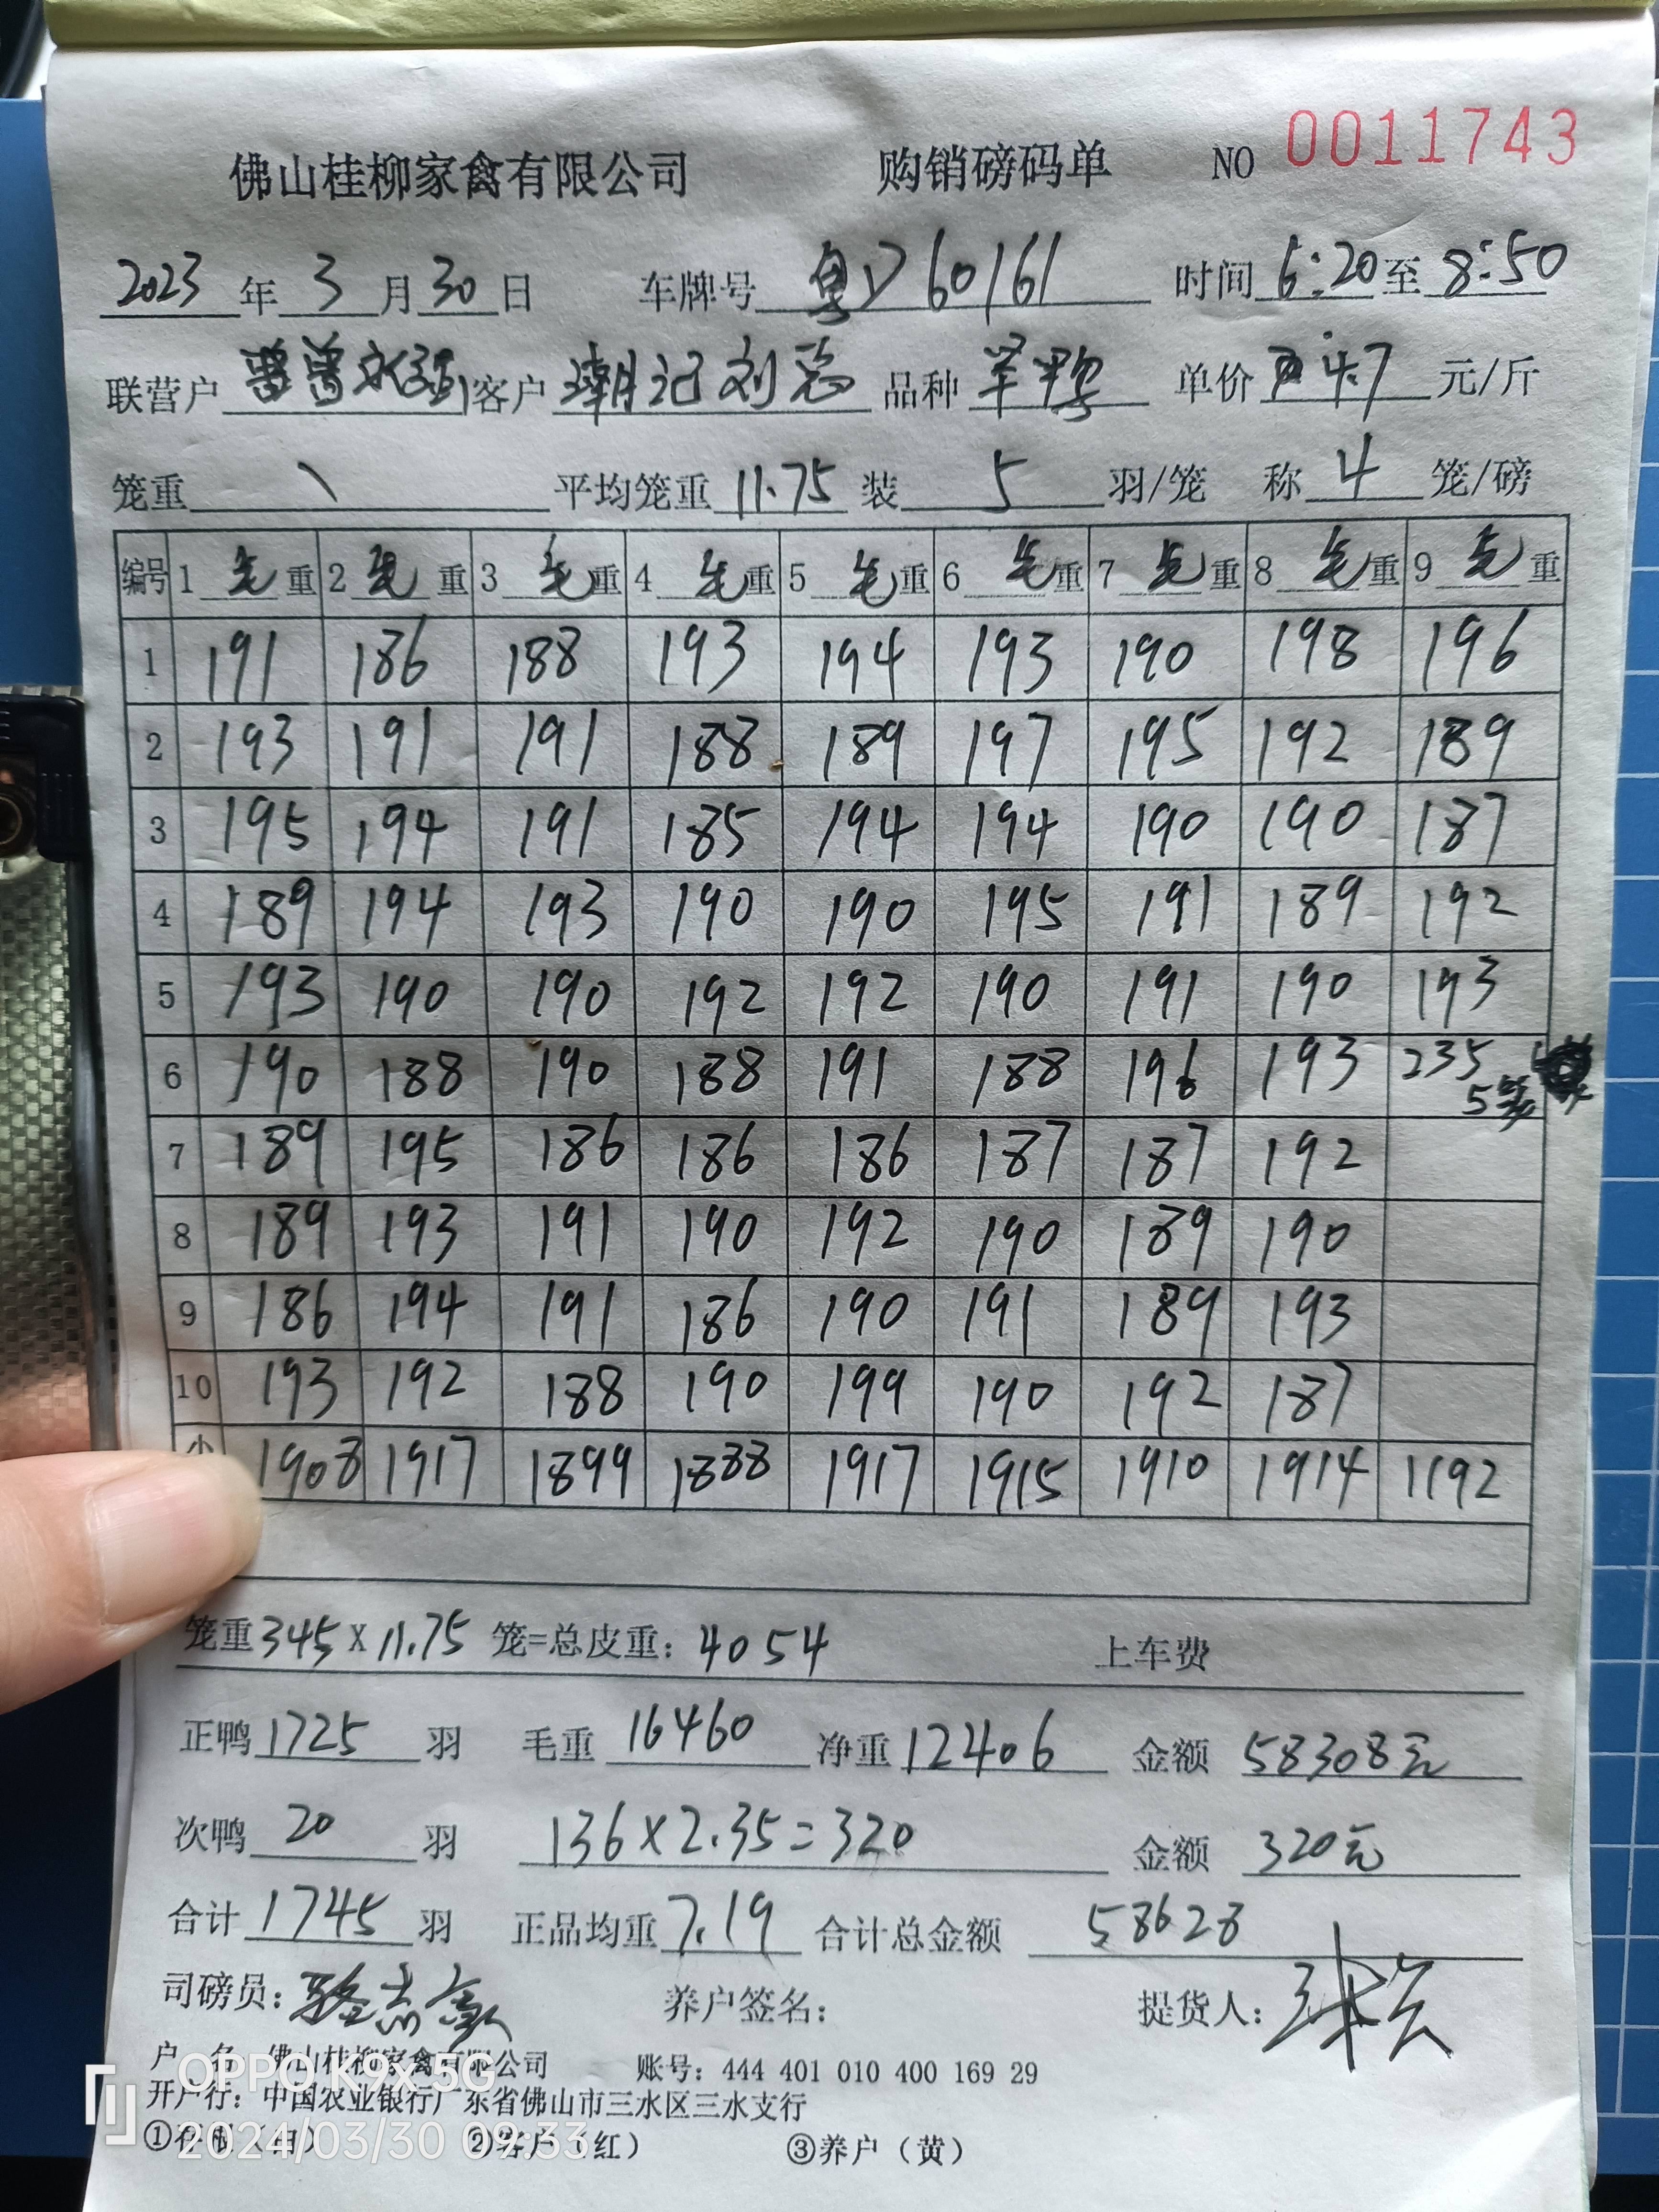 佛山桂柳家禽有限公司 购销磅码单 NO 0011743
2023 年 3 月 30 日 车牌号 粤Y 60161 时间 6:20 至 8:50
联营户 曾 客户 潮记刘总 品种 羊鸭 单价 4.7 元/斤
笼重 \ 平均笼重 11.75 装 5 羽/笼 称 4 笼/磅
编号 1 毛 重 2 毛 重 3 毛 重 4 毛 重 5 毛 重 6 毛 重 7 毛 重 8 毛 重 9 毛 重
1 191 186 188 193 194 193 190 198 196
2 193 191 191 188 189 197 195 192 189
3 195 194 191 185 194 194 190 190 187
4 189 194 193 190 190 195 191 189 192
5 193 190 190 192 192 190 191 190 193
6 190 188 190 188 191 188 196 193 235 5笼
7 189 195 186 186 186 187 187 192
8 189 193 191 190 192 190 189 190
9 186 194 191 186 190 191 189 193
10 193 192 188 190 199 190 192 187
小 1908 1917 1899 1888 1917 1915 1910 1914 1192
笼重 345 x 11.75 笼=总皮重: 4054 上车费
正鸭 1725 羽 毛重 16460 净重 12406 金额 58308元
次鸭 20 羽 136 x 2.35 = 320 金额 320元
合计 1745 羽 正品均重 7.19 合计总金额 58628
司磅员: 养户签名: 提货人:
户 名 佛山桂柳家禽有限公司 账号: 444 401 010 400 169 29
开户行: 中国农业银行广东省佛山市三水区三水支行
①存根(白) ②客户(红) ③养户(黄)
OPPO K9x 5G
2024/03/30 09:33